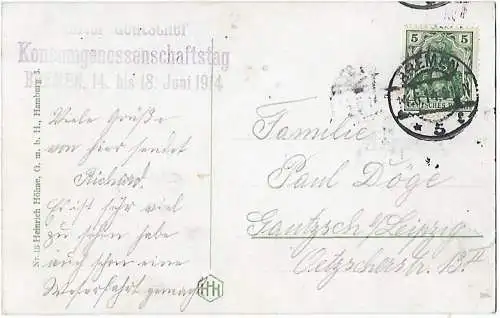 deutscher
Konsumgenossenschaftstag
BREMEN, 14. bis 18. Juni 1914
5 5
BREMEN
* 5
Viele Grüße
von hier sendet
Richard.
Es ist sehr viel
zu sehen habe
auch schon eine
Weserfahrt gemacht
Familie
Paul Döge
Gautzsch b/Leipzig
Oetzscherstr. 13 II
Nr. 18 Heinrich Hölme, G. m. b. H., Hamburg 1.
HH